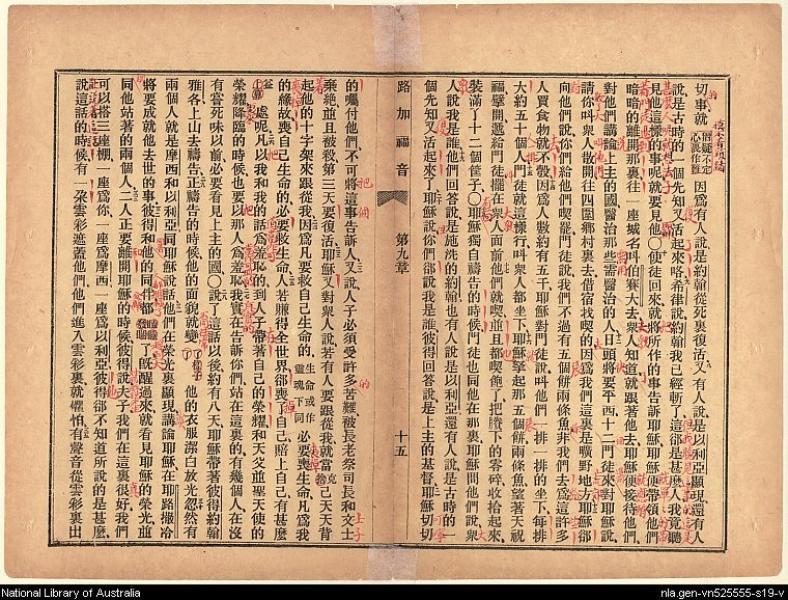 切事就
因爲有人說是約翰從死裏復活又有人說是以利亞顯現還有人
說是古時的一個先知又活起來咯希律說約翰我已經斬了這郤是甚麽人我竟聽
見他這樣的事呢就要見他〇使徒回來就將所作的事告訴耶穌耶穌便帶領他們
暗暗的離開那裏往一座城名叫伯賽大去衆人知道就跟著他去耶穌便接待他們
對他們講論上主的國醫治那些需醫治的人日頭將要平西十二門徒來對耶穌說
請你叫衆人散開往四圍鄉村裏去借宿找喫的因爲我們這裏是曠野地方耶穌郤
向他們說你們給他們喫罷門徒說我們不過有五個餅兩條魚非我們去爲這許多
人買食物就不彀因爲人數約有五千耶穌對門徒說叫他們一排一排的坐下每排
大約五十個人門徒就這樣行叫衆人都坐下耶穌拏起那五個餅兩條魚望著天祝
福擘開遞給門徒擺在衆人面前他們就喫並且都喫飽了把賸下的零碎收拾起來
裝滿了十二個筐子〇耶穌獨自禱告的時候門徒也同他在那裏耶穌問他們說衆
人說我是誰他們回答說是施洗的約翰也有人說是以利亞還有人說是古時的一
個先知又活起來了耶穌說你們郤說我是誰彼得回答說是上主的基督耶穌切切
路加福音
第九章
十五
的囑付他們不可將這事告訴人又說人子必須受許多苦難被長老祭司長和文士
棄絶並且被殺第三天要復活耶穌又對衆人說若有人要跟從我就當
天天背
起他的十字架來跟從我因爲凡要救自己生命的
生命或作
靈魂下同
必要喪生命凡爲我
的緣故喪自己生命的必要救生命人若賺得全世界郤喪了自己賠上自己有甚麽
益處呢凡以我和我的話爲羞恥的到人子帶著自己的榮耀和天父並聖天使的
榮耀降臨的時候也要以那人爲羞恥我實在告訴你們站在這裏的有幾個人在沒
有嘗死味以前必要看見上主的國〇說了這話以後約有八天耶穌帶著彼得約翰
雅各上山去禱告正禱告的時候他的面貌就變
他的衣服潔白放光忽然有
兩個人就是摩西和以利亞同耶穌說話他們在榮光裏顯現講論耶穌在耶路撒冷
將要成就他去世的事彼得和他的同伴都
了旣醒過來就看見耶穌的榮光並
同他站著的兩個人二人正要離開耶穌的時候彼得說夫子我們在這裏很好我們
可以搭三座棚一座爲你一座爲摩西一座爲以利亞彼得郤不知道所說的是甚麽
說這話的時候有一朶雲彩遮蓋他們他們進入雲彩裏就懼怕有聲音從雲彩裏出
National Library of Australia
nla.gen-vn525555-s19-v